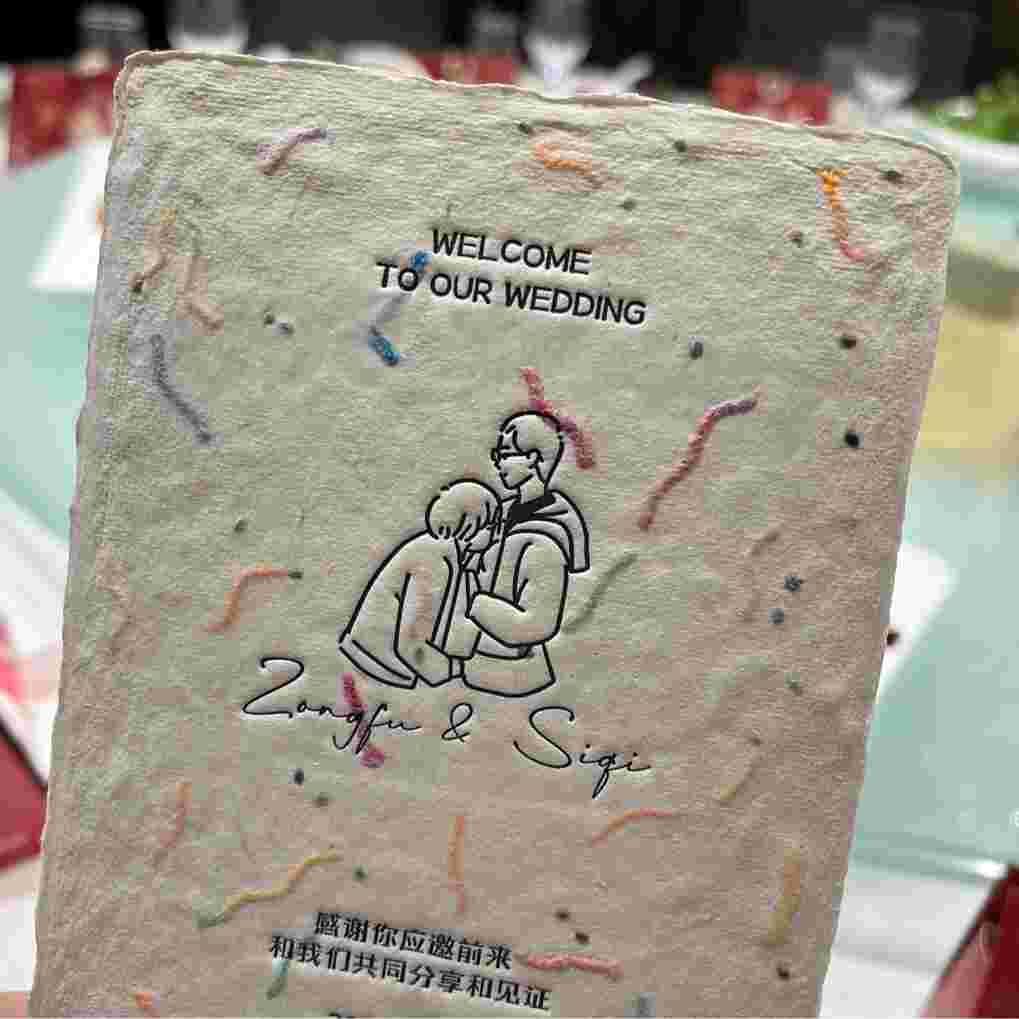 WELCOME
TO OUR WEDDING
Zongfu & Siqi
感谢你应邀前来
和我们共同分享和见证